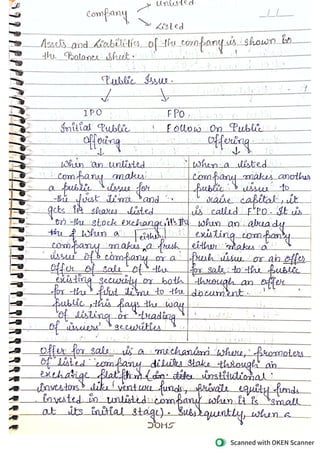 Unlisted
Company
Listed
Assets and Liabilities of the company is shown in
the Balance Sheet.
Public Issue.
IPO FPO
Initial Public Follow On Public
Offering Offering
When an unlisted When a listed
company makes company makes another
a public issue for public issue to
the first time and raise capital, it
gets its shares listed is called FPO. It is
on the stock exchange, it's IPO when an already
the f when a either existing company
company makes a fresh either makes a
issue of company or a fresh issue or an offer
offer of sale of the for sale to the public
existing security or both through an offer
for the first time to the document.
public, this pays the way
of listing or trading
of issuers' securities
Offer for sale is a mechanism where, promoters
of listed company dilutes stake through an
exchange platform (in like institutional
Investors like venture funds, private equity funds
invested in unlisted company when it is small
at its initial stage). Subsequently, when a
DOMS
Scanned with OKEN Scanner